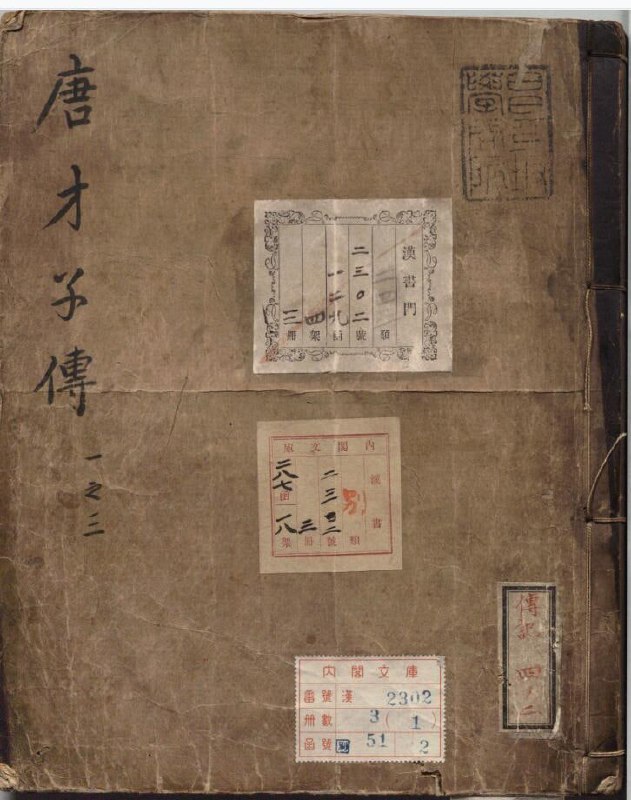 唐才子傳
一之三
漢書門
類
二三〇二號
一二九函
四架
三冊
內閣文庫
漢書
別
類
號
三冊
二八七函
一八架
傳記
四ノ二
內閣文庫
番號 漢 2302
冊數 3(1)
函號 別 51 2